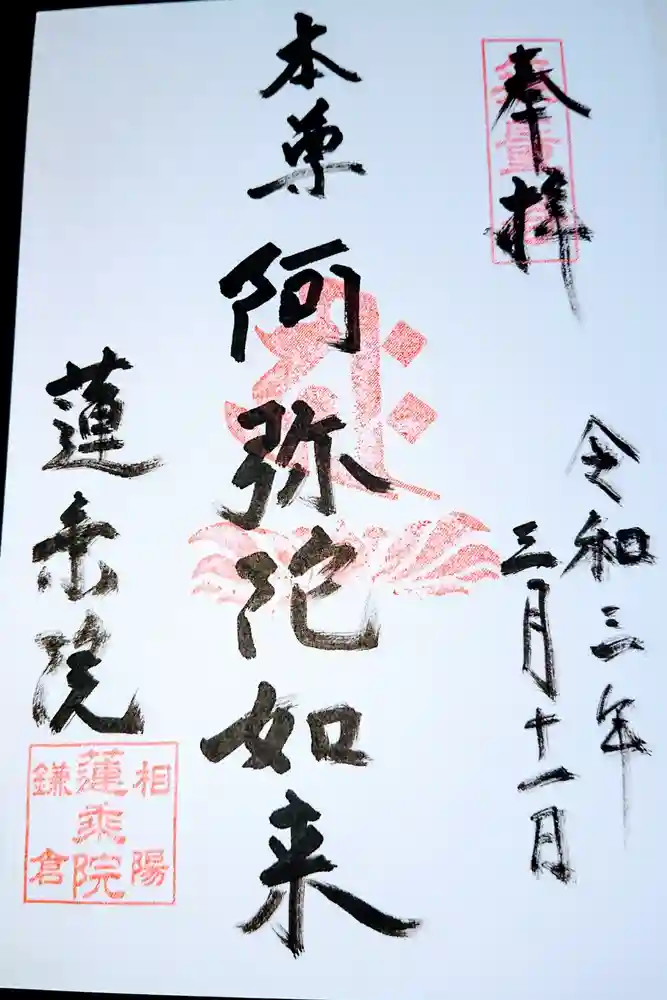 奉拝
量
令和三年
三月十一月
本尊
阿弥陀如来
蓮乗院
相陽
蓮乗院
鎌倉